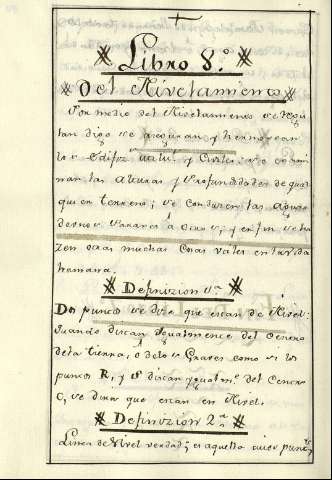 Libro 8.º
Del Nivelamiento
Por medio del Nivelamiento se
tan digo se aseguran, y hermosean
los Edific. Milit.s y Civiles: se exami-
nan las alturas, y Profundidades de qual-
quier terreno; se conducen las aguas
de unos Parares á otros; y en fin se ha-
zen otras muchas cosas utiles en la vida
humana.
Definizion 1.ª
Dos puntos se dira que estan de Nivel:
Quando distan Ygualmente del Centro
de la tierra, o de los Graves como si los
puntos R, y S distan Ygualm.te del Centro
C, se dira que estan en Nivel.
Definizion 2.ª
Linea de Nivel verdad.ª es aquella cuios punt.s